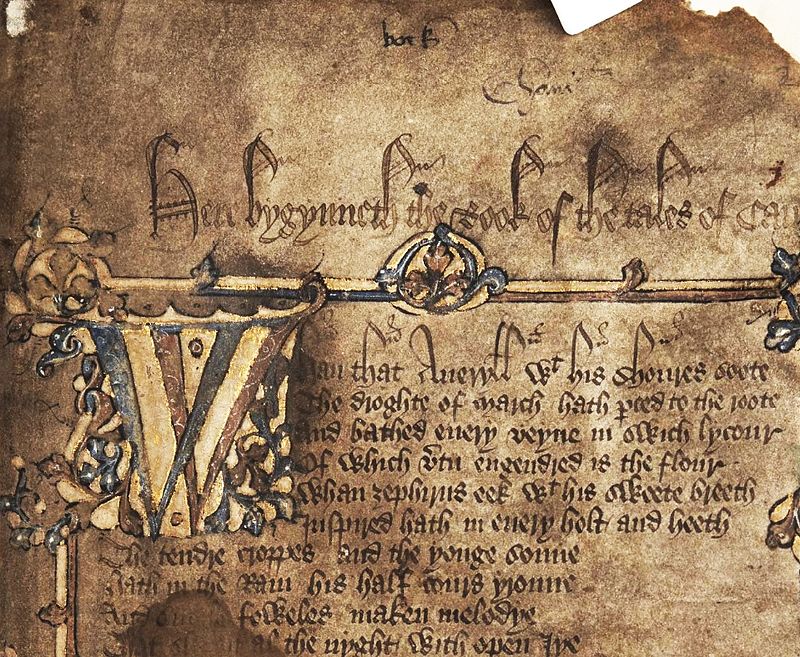 book
Here bygynneth the Book of the tales of Cau
Whan that Aueryłł wt his shoures soote
The droghte of march hath pced to the roote
And bathed euery veyne in swich lycour
Of which vtu engendred is the flour
Whan zephirus eek wt his sweete breeth
Inspired hath in euery holt and heeth
The tendre croppes and the yonge sonne
Hath in the Ram his half cours yronne
And foweles maken melodye
al the nyght with open Iye